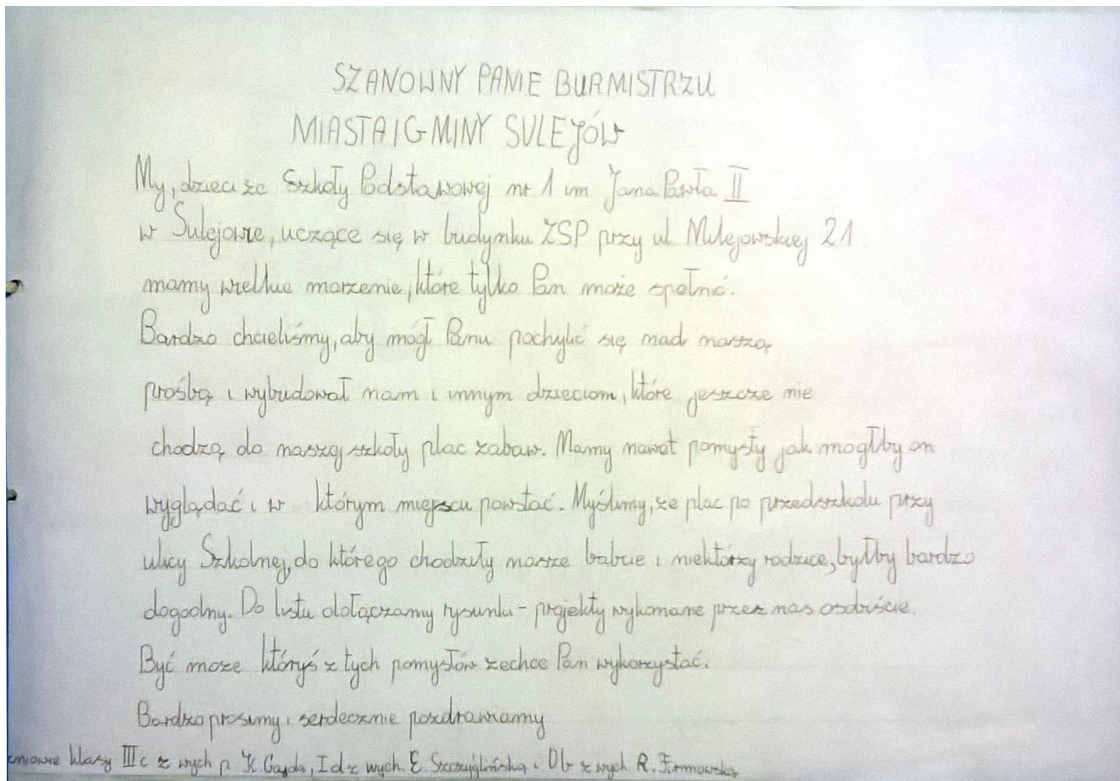 SZANOWNY PANIE BURMISTRZU
MIASTA I GMINY SULEJÓW
My, dzieci ze Szkoły Podstawowej nr 1 im Jana Pawła II
w Sulejowie, uczące się w budynku ZSP przy ul Milejowskiej 21
mamy wielkie marzenie, które tylko Pan może spełnić.
Bardzo chcieliśmy, aby mógł Panu pochylić się nad naszą
prośbą i wybudował nam i innym dzieciom, które jeszcze nie
chodzą do naszej szkoły plac zabaw. Mamy nawet pomysły jak mógłby on
wyglądać i w którym miejscu powstać. Myślimy, że plac po przedszkolu przy
ulicy Szkolnej, do którego chodziły nasze babcie i niektórzy rodzice, byłby bardzo
dogodny. Do listu dołączamy rysunki - projekty wykonane przez nas osobiście.
Być może któryś z tych pomysłów zechce Pan wykorzystać.
Bardzo prosimy i serdecznie pozdrawiamy
uczniowie klasy III c z wych p. K Gajda, I d z wych. E. i O b z wych R.